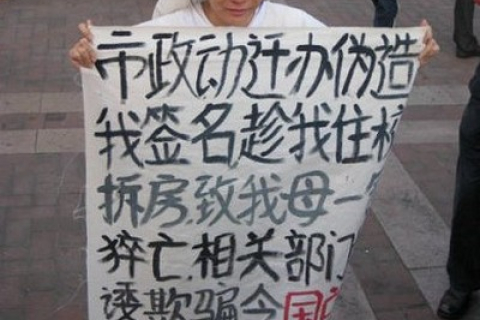 市政动迁办伪造
我签名趁我住
拆房,致我母一
猝亡,相关部门
诿欺骗今国